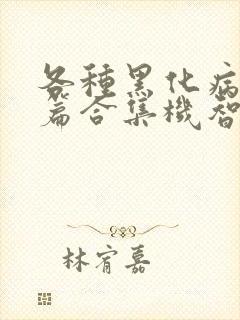 各種黑化病
篇合集機智
林宥嘉